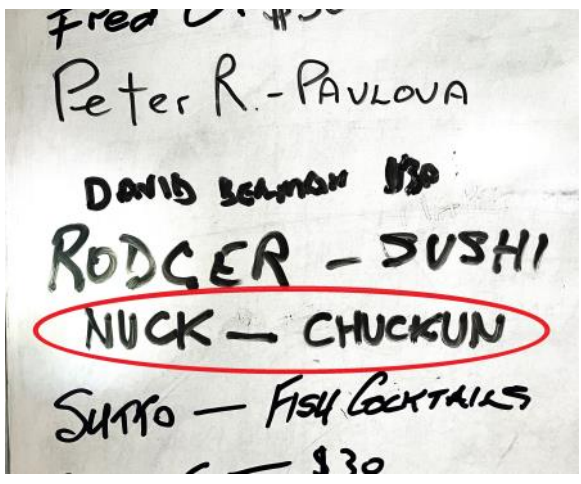 Fred
Peter R. - PAVLOVA
DAVID BERMAN $30
RODGER - SUSHI
NUCK - CHUCKUN
SUTTO - FISH COCKTAILS
$30